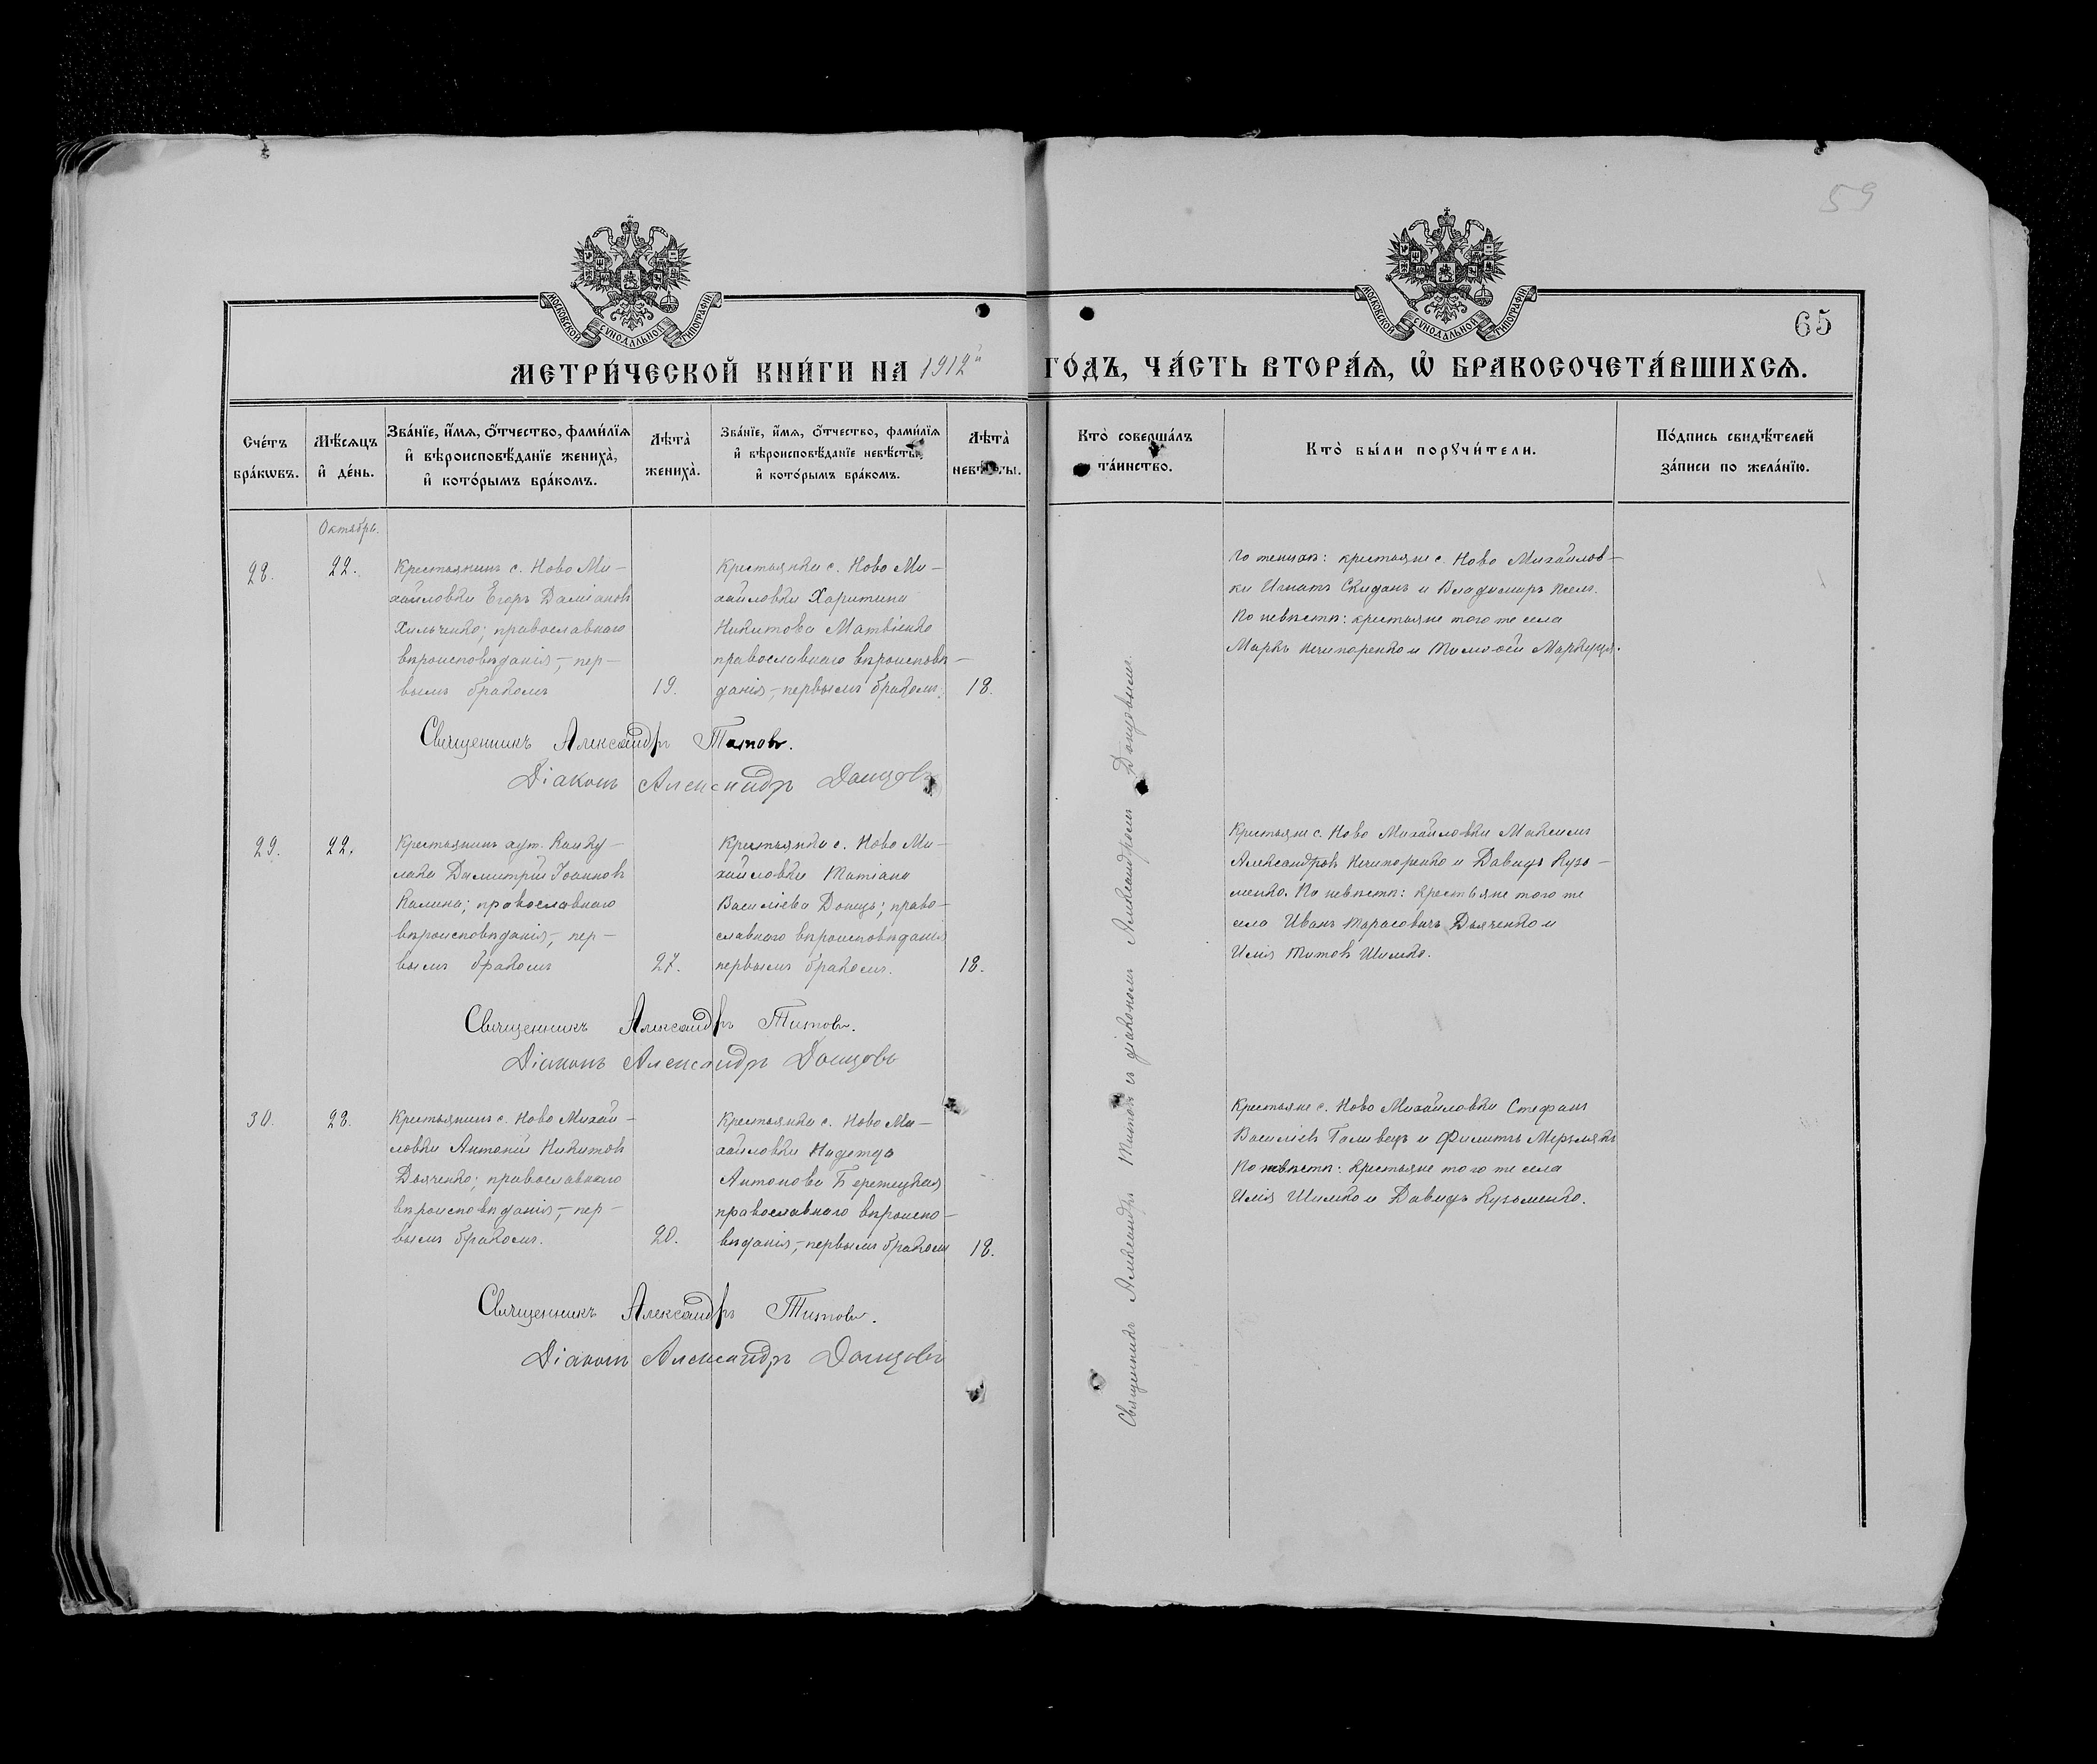 59
65
МОСКОВСКОЙ СѴНОДАЛЬНОЙ ТИПОГРАФІИ
МОСКОВСКОЙ СѴНОДАЛЬНОЙ ТИПОГРАФІИ
МЕТРИ́ЧЕСКОЙ КНИ́ГИ НА 1912й ГО́ДЪ, ЧА́СТЬ ВТОРА́Ѧ, Ѡ҆ БРАКОСОЧЕТА́ВШИХСѦ.
Сче́тъ бра́кѡвъ.
Мѣ́сѧцъ и҆ де́нь.
Зва́нїе, и҆́мѧ, ѻ҆́тчество, фами́лїѧ
и҆ вѣроисповѣ́данїе жениха̀,
и҆ кото́рымъ бра́комъ.
Лѣта̀ жениха̀.
Зва́нїе, и҆́мѧ, ѻ҆́тчество, фами́лїѧ
и҆ вѣроисповѣ́данїе невѣ́сты,
и҆ кото́рымъ бра́комъ.
Лѣта̀ невѣ́сты.
Кто̀ соверша́лъ та́инство.
Кто̀ бы́ли порꙋчи́тели.
По́дпись свидѣ́телей за́писи по жела́нїю.
Октябрь.
28.
22.
Крестьянинъ с. Ново Ми-
хайловки Егоръ Даміановъ
Хильченко; православнаго
вѣроисповѣданія,- пер-
вымъ бракомъ
19.
Крестьянка с. Ново Ми-
хайловки Харитина
Никитова Матвіенко
православнаго вѣроисповѣ-
данія,- первымъ бракомъ.
18.
По женихѣ: крестьяне с. Ново Михайлов-
ки Игнатъ Скиданъ и Владимиръ
По невѣстѣ: крестьяне того же села
Маркъ Нечипоренко и Тимоѳей
Священникъ Александръ Титовъ.
Діаконъ Александръ Донцовъ
29.
22.
Крестьянинъ хут.
Димитрій Іоанновъ
Калина; православнаго
вѣроисповѣданія,- пер-
вымъ бракомъ
27.
Крестьянка с. Ново Ми-
хайловки Татіана
Василіева Донецъ; право-
славнаго вѣроисповѣданія
первымъ бракомъ.
18.
Крестьяне с. Ново Михайловки Максимъ
Александровъ Нечипоренко и Давидъ Кузь-
менко. По невѣстѣ: крестьяне того же
села Иванъ Тарасовичъ Дьяченко и
Илія Титовъ Шимко.
Священникъ Александръ Титовъ.
Діаконъ Александръ Донцовъ
30.
28.
Крестьянинъ с. Ново Михай-
ловки Антоній Никитовъ
Дьяченко; православнаго
вѣроисповѣданія,- пер-
вымъ бракомъ.
20.
Крестьянка с. Ново Ми-
хайловки Надежда
Антонова Бережецкая
православнаго вѣроиспо-
вѣданія,- первымъ бракомъ
18.
Крестьяне с. Ново Михайловки Стефанъ
Василіевъ Голивецъ и Филиппъ
По невѣстѣ: крестьяне того же села
Илія Шимко и Давидъ Кузьменко.
Священникъ Александръ Титовъ.
Діаконъ Александръ Донцовъ
Священникъ Александръ Титовъ съ діакономъ Александромъ Донцовымъ.